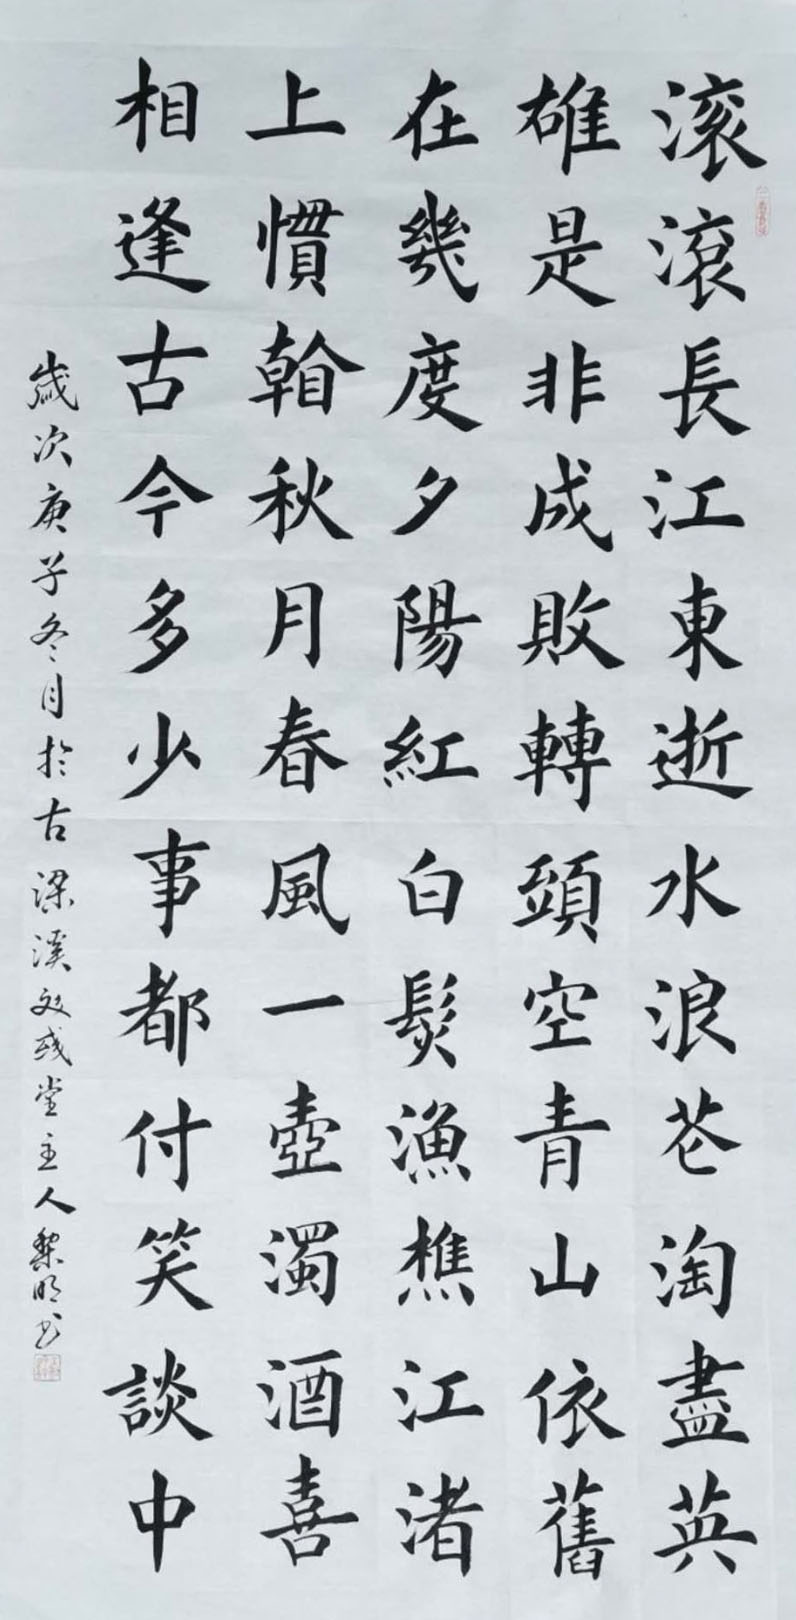 滚滾長江東逝水浪花淘盡英
雄是非成敗轉頭空青山依舊
在幾度夕陽紅白髮漁樵江渚
上慣看秋月春風一壺濁酒喜
相逢古今多少事都付笑談中
歲次庚子冬月於古梁溪堂主人黎明书